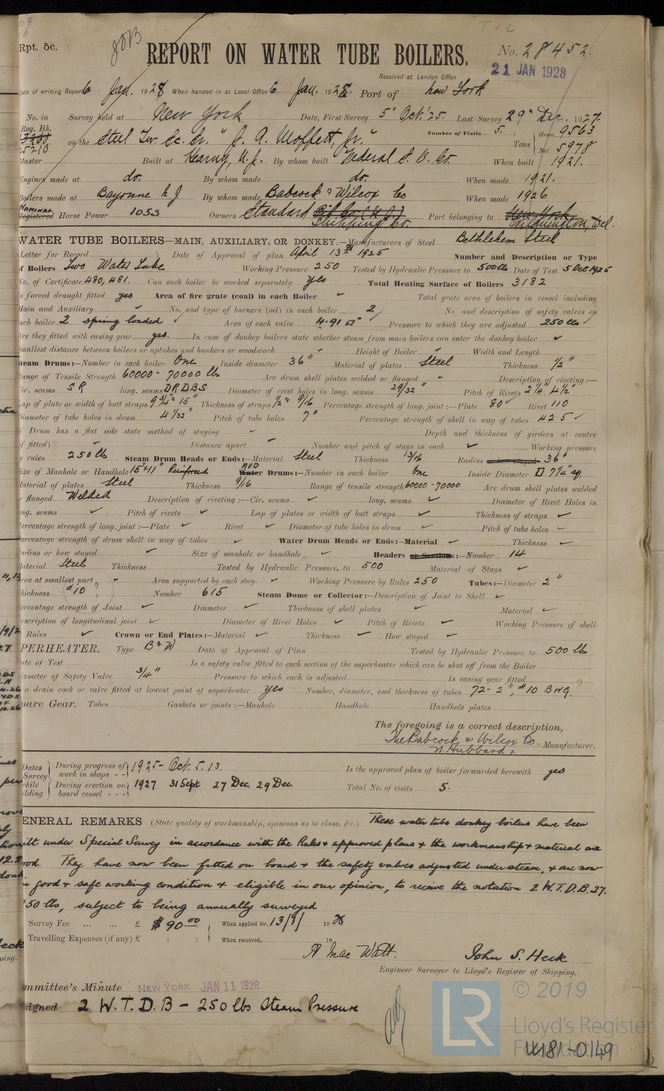 Rpt. 5c.
REPORT ON WATER TUBE BOILERS.
No. 28452
21 JAN 1928
Received at London Office
ate of writing Report 6 Jan. 1928 When handed in at Local Office 6 Jan. 1928 Port of New York
No. in Survey held at New York Date, First Survey 5th Oct '25 Last Survey 29th Dec. 1927
Reg. Bk.
5210 on the Steel Tw. Sc. Sr. "J. A. Moffett, Jr." Number of Visits 5. Tons Gross 9563 Net 5978
Master Built at Kearny, N.J. By whom built Federal S. B. Co. When built 1921.
Engines made at do. By whom made do. When made 1921.
Boilers made at Bayonne N J By whom made Babcock & Wilcox Co When made 1926
Nominal Registered Horse Power 1053 Owners Standard Shipping Co. Port belonging to Wilmington, Del.
WATER TUBE BOILERS—MAIN, AUXILIARY, OR DONKEY.—Manufacturers of Steel Bethlehem Steel
Letter for Record Date of Approval of plan April 13th 1925 Number and Description or Type
of Boilers Two Water Tube Working Pressure 250 Tested by Hydraulic Pressure to 500 lbs Date of Test 5 Oct 1925
No. of Certificate 480, 481. Can each boiler be worked separately yes Total Heating Surface of Boilers 3182
s forced draught fitted yes Area of fire grate (coal) in each Boiler ✓ Total grate area of boilers in vessel including
Main and Auxiliary ✓ No. and type of burners (oil) in each boiler 2 No. and description of safety valves on
ach boiler 2 spring loaded Area of each valve 4.91 □" Pressure to which they are adjusted 250 lbs
re they fitted with easing gear yes. In case of donkey boilers state whether steam from main boilers can enter the donkey boiler ✓
mallest distance between boilers or uptakes and bunkers or woodwork Height of Boiler ✓ Width and Length
Steam Drums:—Number in each boiler One Inside diameter 36" Material of plates Steel Thickness 1/2"
Range of Tensile Strength 60000 - 70000 lb Are drum shell plates welded or flanged ✓ Description of riveting:—
Cir. seams S R long. seams D R D B S Diameter of rivet holes in long. seams 29/32" Pitch of Rivets 2 1/4" 4 1/2"
ap of plate or width of butt straps 9 3/4" 15" Thickness of straps 1/2" 9/16 Percentage strength of long. joint:—Plate 80 Rivet 110
Diameter of tube holes in drum 4 1/32" Pitch of tube holes 7" Percentage strength of shell in way of tubes 42.5
Drum has a flat side state method of staying Depth and thickness of girders at centre
f fitted) Distance apart Number and pitch of stays in each Working pressure
y rules 250 lb Steam Drum Heads or Ends:—Material Steel Thickness 13/16 Radius 36"
Size of Manhole or Handhole 15" x 11" Reinforced Mud Drums:—Number in each boiler One Inside Diameter □ 7 1/4" sq.
Material of plates Steel Thickness 9/16 Range of tensile strength 60000 - 70000 Are drum shell plates welded
r flanged Welded Description of riveting:—Cir. seams ✓ long. seams ✓ Diameter of Rivet Holes in
ng. seams ✓ Pitch of rivets ✓ Lap of plates or width of butt straps ✓ Thickness of straps ✓
ercentage strength of long. joint:—Plate ✓ Rivet ✓ Diameter of tube holes in drum ✓ Pitch of tube holes ✓
ercentage strength of drum shell in way of tubes ✓ Water Drum Heads or Ends:—Material ✓ Thickness ✓
adius or how stayed ✓ Size of manhole or handhole ✓ Headers or Sections:—Number 14
aterial Steel Thickness Tested by Hydraulic Pressure, to 500 Material of Stays ✓
rea at smallest part Area supported by each stay ✓ Working Pressure by Rules 250 Tubes:—Diameter 2"
hickness #10 Number 615 Steam Dome or Collector:—Description of Joint to Shell ✓
ercentage strength of Joint ✓ Diameter ✓ Thickness of shell plates ✓ Material ✓
escription of longitudinal joint ✓ Diameter of Rivet Holes ✓ Pitch of Rivets ✓ Working Pressure of shell
Rules ✓ Crown or End Plates:—Material ✓ Thickness ✓ How stayed ✓
PERHEATER. Type B & W Date of Approval of Plan Tested by Hydraulic Pressure to 500 lb
ate of Test Is a safety valve fitted to each section of the superheater which can be shut off from the Boiler
ameter of Safety Valve 3/4" Pressure to which each is adjusted Is easing gear fitted
a drain cock or valve fitted at lowest point of superheater yes Number, diameter, and thickness of tubes 72 - 2", #10 BWG.
pare Gear. Tubes Gaskets or joints:—Manhole Handhole Handhole plates
The foregoing is a correct description,
The Babcock & Wilcox Co. Manufacturer.
Dates Survey During progress of work in shops - - 1925 - Oct. 5. 13. Is the approved plan of boiler forwarded herewith yes
while During erection on board vessel - - - 1927 31 Sept 27 Dec 29 Dec Total No. of visits 5.
ENERAL REMARKS (State quality of workmanship, opinions as to class, &c.) These water tube donkey boilers have been
ilt under Special Survey in accordance with the Rules & approved plans & the workmanship & material are
ood. They have now been fitted on board & the safety valves adjusted under steam, & are now
good & safe working condition & eligible in our opinion, to receive the notation 2 W.T.D.B. 27.
250 lbs, subject to being annually surveyed
Survey Fee ... ... £ $90.00 When applied for,
Travelling Expenses (if any) £ When received,
A Mac Watt. John S. Heck
Engineer Surveyor to Lloyd's Register of Shipping.
mmittee's Minute NEW YORK JAN 11 1928
signed 2 W.T.D.B - 250 lbs Steam Pressure
© 2019
LR
Lloyd's Register
Foundation
W181-0149